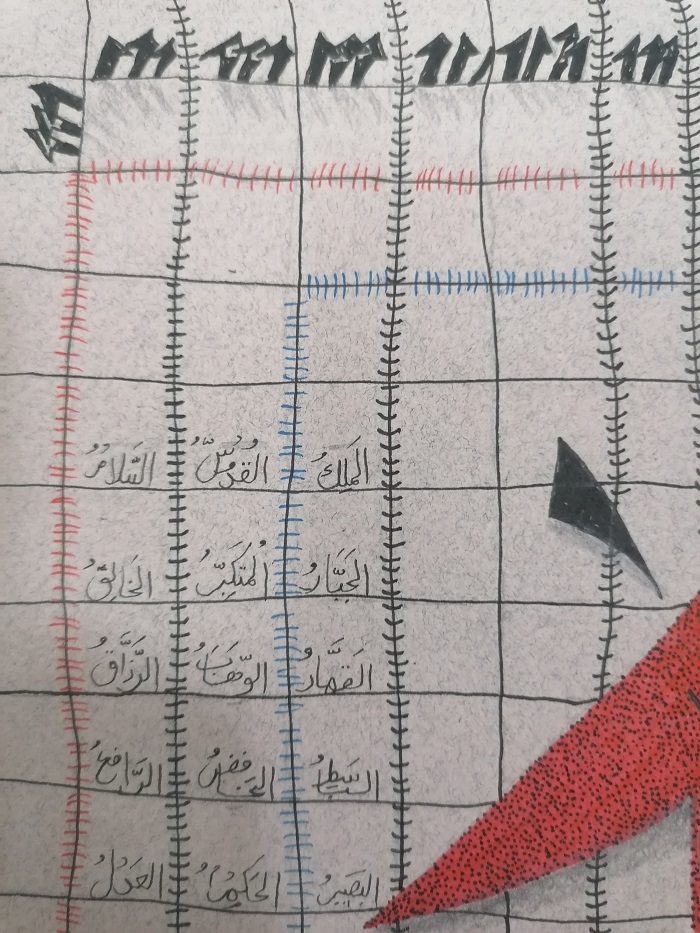 المَلِكُ القُدُّوسُ السَّلَامُ
الجَبَّارُ المُتَكَبِّرُ الخَالِقُ
القَهَّارُ الوَهَّابُ الرَّزَّاقُ
البَسِطُ الرَّافِعُ
البَصِيرُ الحَكَمُ العَدْلُ